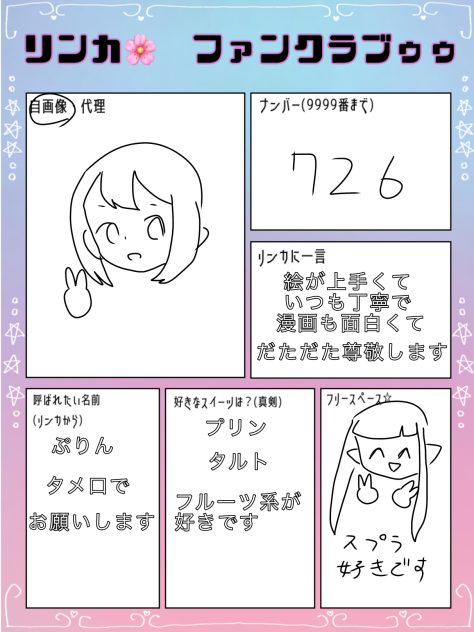 リンカ🌸 ファンクラブゥゥ
自画像 代理
ナンバー(9999番まで)
726
リンカに一言
絵が上手くて
いつも丁寧で
漫画も面白くて
だただた尊敬します
呼ばれたい名前
(リンカから)
ぷりん
タメ口で
お願いします
好きなスイーツは?(真剣)
プリン
タルト
フルーツ系が
好きです
フリースペース☆
スプラ
好きです